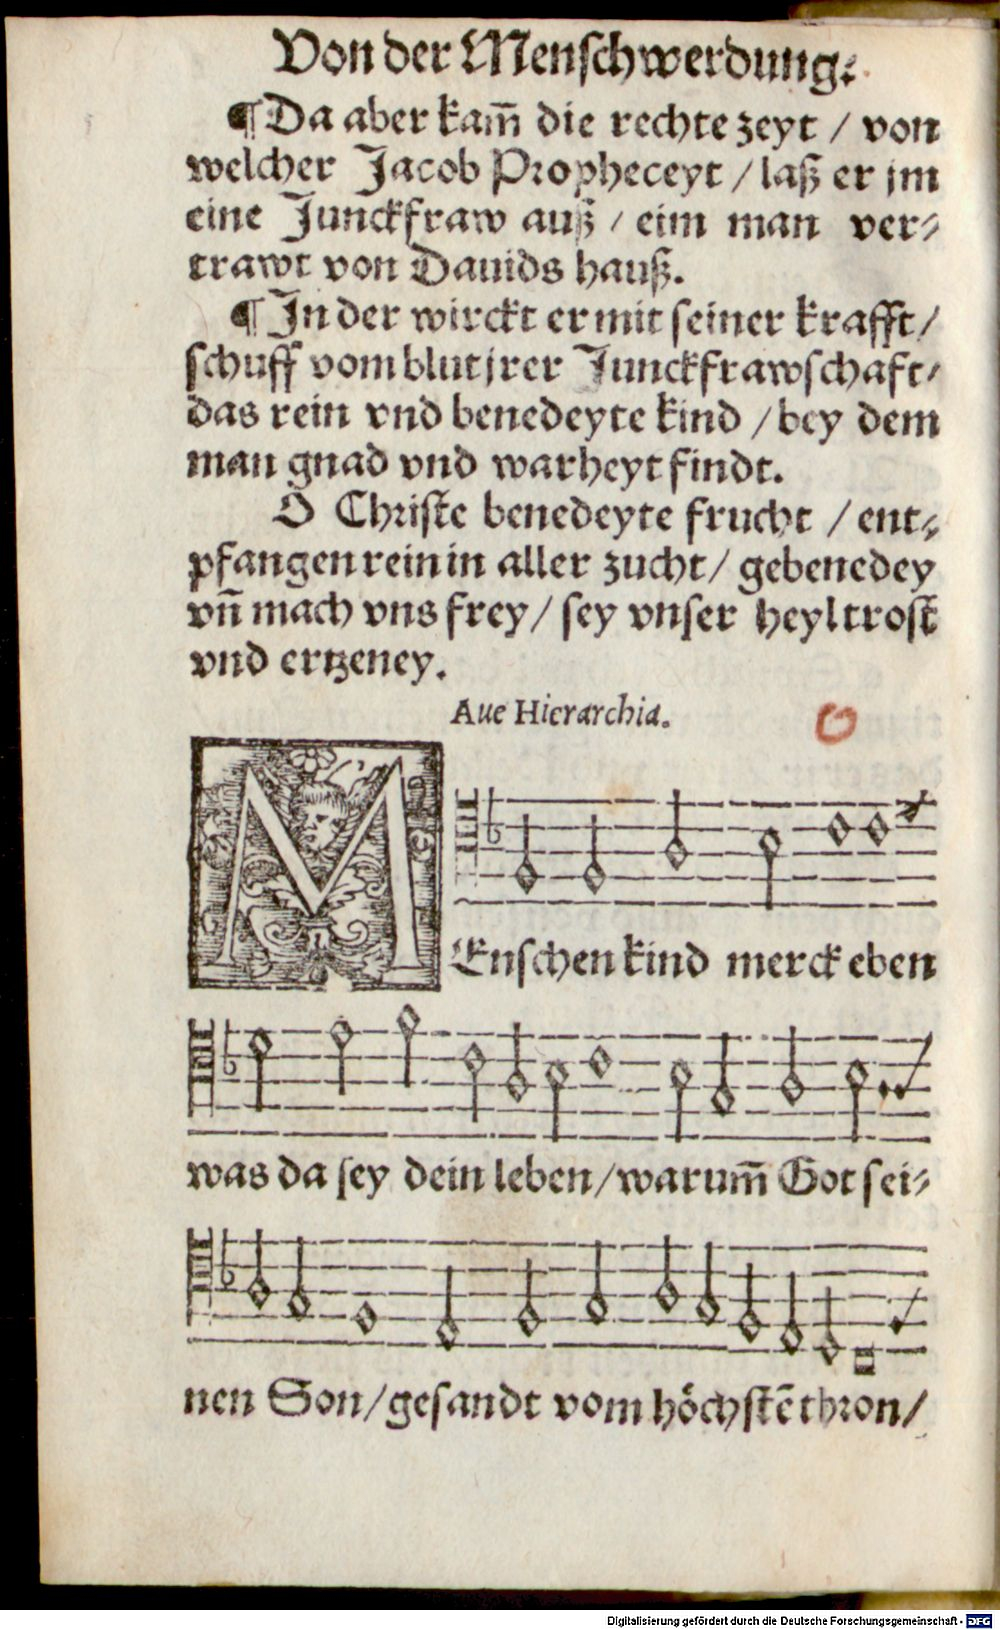 Von der Menschwerdung.
¶ Da aber kam̄ die rechte zeyt / von
welcher Jacob Propheceyt / laß er jm
eine Junckfraw auß / eim man ver⸗
trawt von Dauids hauß.
¶ In der wirckt er mit seiner krafft /
schuff vom blut jrer Junckfrawschaft /
das rein vnd benedeyte kind / bey dem
man gnad vnd warheyt findt.
O Christe benedeyte frucht / ent⸗
pfangen rein in aller zucht / gebenedey
vn̄ mach vns frey / sey vnser heyl trost
vnd ertzeney.
Aue Hierarchia.
MEnschenkind merck eben
was da sey dein leben / warum̄ Got sei⸗
nen Son / gesandt vom höchstē thron /
Digitalisierung gefördert durch die Deutsche Forschungsgemeinschaft - DFG